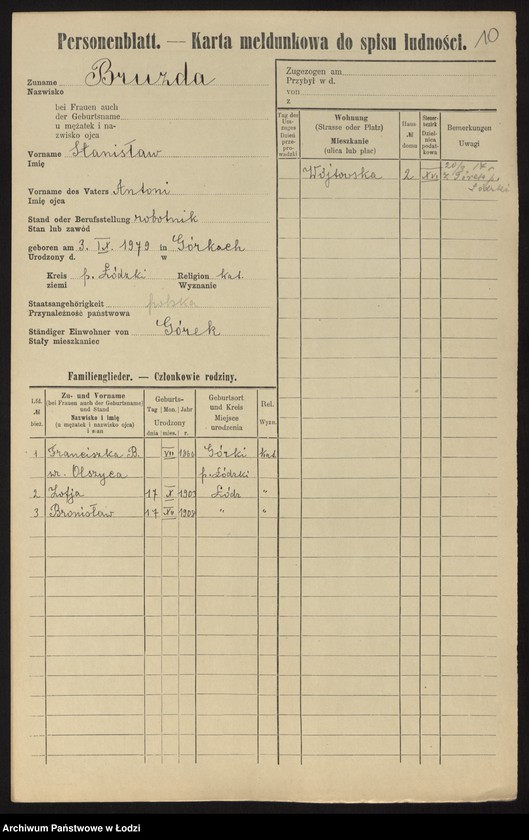 Personenblatt. — Karta meldunkowa do spisu ludności.
10
Zuname
Nazwisko
Bruzda
bei Frauen auch
der Geburtsname
u mężatek i na-
zwisko ojca
Vorname Stanisław
Imię
Vorname des Vaters Antoni
Imię ojca
Stand oder Berufsstellung robotnik
Stan lub zawód
geboren am 3. IX. 1979 in Górkach
Urodzony d. w
Kreis p. Łódzki Religion kat.
ziemi Wyznanie
Staatsangehörigkeit polska
Przynależność państwowa
Ständiger Einwohner von Górek
Stały mieszkaniec
Zugezogen am
Przybył w d.
von
z
Tag des
Um-
zuges
Dzień
prze-
pro-
wadzki
Wohnung
(Strasse oder Platz)
Mieszkanie
(ulica lub plac)
Haus
№
domu
Steuer-
bezirk
Dziel-
nica
podat-
kowa
Bemerkungen
Uwagi
Wójtowska 2 XVI
z Górek p.
Łódzki
Familienglieder. — Członkowie rodziny.
Lfd.
№
bież.
Zu- und Vorname
(bei Frauen auch der Geburtsname)
und Stand
Nazwisko i imię
(u mężatek i nazwisko ojca)
i stan
Geburts-
Tag Mon. Jahr
Urodzony
dnia mies. r.
Geburtsort
und Kreis
Miejsce
urodzenia
Rel.
Wyzn.
1 Franciszka B. VII Górki kat
wr. Olszyca p. Łódzki
2 Zofja 17 X 1903 Łódź "
3 Bronisław 17 " "
Archiwum Państwowe w Łodzi